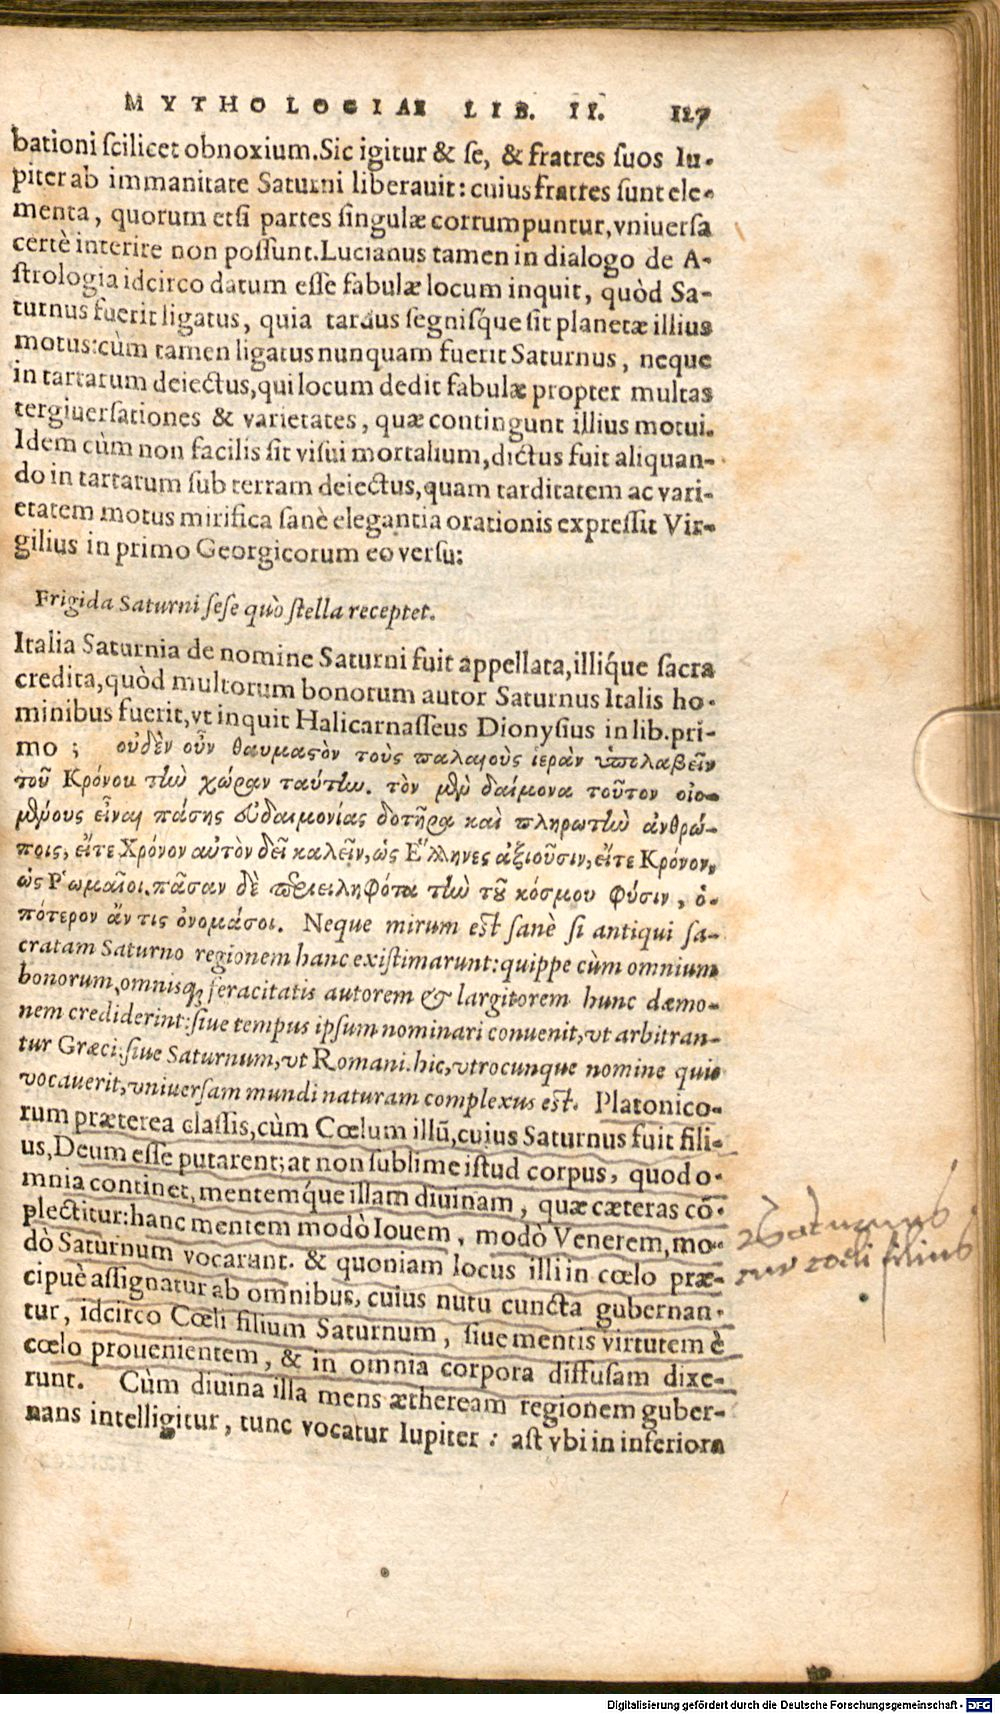 MYTHOLOGIAE LIB. II. 127
bationi ſcilicet obnoxium. Sic igitur & ſe, & fratres ſuos Iu-
piter ab immanitate Saturni liberauit: cuius fratres ſunt ele-
menta, quorum etſi partes ſingulæ corrumpuntur, vniuerſa
certè interire non poſſunt. Lucianus tamen in dialogo de A-
ſtrologia idcirco datum eſſe fabulæ locum inquit, quòd Sa-
turnus fuerit ligatus, quia tardus ſegniſq́ue ſit planetæ illius
motus: cùm tamen ligatus nunquam fuerit Saturnus, neque
in tartarum deiectus, qui locum dedit fabulæ propter multas
tergiuerſationes & varietates, quæ contingunt illius motui.
Idem cùm non facilis ſit viſui mortalium, dictus fuit aliquan-
do in tartarum ſub terram deiectus, quam tarditatem ac vari-
etatem motus mirifica ſanè elegantia orationis expreſſit Vir-
gilius in primo Georgicorum eo verſu:
Frigida Saturni ſeſe quò ſtella receptet.
Italia Saturnia de nomine Saturni fuit appellata, illiq́ue ſacra
credita, quòd multorum bonorum autor Saturnus Italis ho-
minibus fuerit, vt inquit Halicarnaſſeus Dionyſius in lib. pri-
mo ; οὐδὲν οὖν θαυμαϛὸν τοὺς παλαιοὺς ἱερὰν ὑπολαβεῖν
τοῦ Κρόνου τὴν χώραν ταύτην. τὸν μὲν δαίμονα τοῦτον οἰο-
μένους εἶναι πάσης εὐδαιμονίας δοτῆρα καὶ πληρωτὴν ἀνθρώ-
ποις, εἴτε Χρόνον αὐτὸν δεῖ καλεῖν, ὡς Ἕλληνες ἀξιοῦσιν, εἴτε Κρόνον,
ὡς Ῥωμαῖοι. πᾶσαν δὲ περιειληφότα τὴν τοῦ κόσμου φύσιν, ὁ-
πότερον ἄν τις ὀνομάσοι. Neque mirum eſt ſanè ſi antiqui ſa-
cratam Saturno regionem hanc exiſtimarunt: quippe cùm omnium
bonorum, omniſq; feracitatis autorem & largitorem hunc dæmo-
nem crediderint: ſiue tempus ipſum nominari conuenit, vt arbitran-
tur Græci: ſiue Saturnum, vt Romani. hic, vtrocunque nomine quis
vocauerit, vniuerſam mundi naturam complexus eſt. Platonico-
rum præterea claſſis, cùm Cœlum illũ, cuius Saturnus fuit fili-
us, Deum eſſe putarent; at non ſublime iſtud corpus, quod o-
mnia continet, mentemq́ue illam diuinam, quæ cæteras cõ-
plectitur: hanc mentem modò Iouem, modò Venerem, mo-
dò Saturnum vocarunt. & quoniam locus illi in cœlo præ-
cipuè aſſignatur ab omnibus, cuius nutu cuncta gubernan-
tur, idcirco Cœli filium Saturnum, ſiue mentis virtutem è
cœlo prouenientem, & in omnia corpora diffuſam dixe-
runt. Cùm diuina illa mens ætheream regionem guber-
nans intelligitur, tunc vocatur Iupiter : aſt vbi in inferiora
Saturnus
cur coeli filius
Digitalisierung gefördert durch die Deutsche Forschungsgemeinschaft - DFG